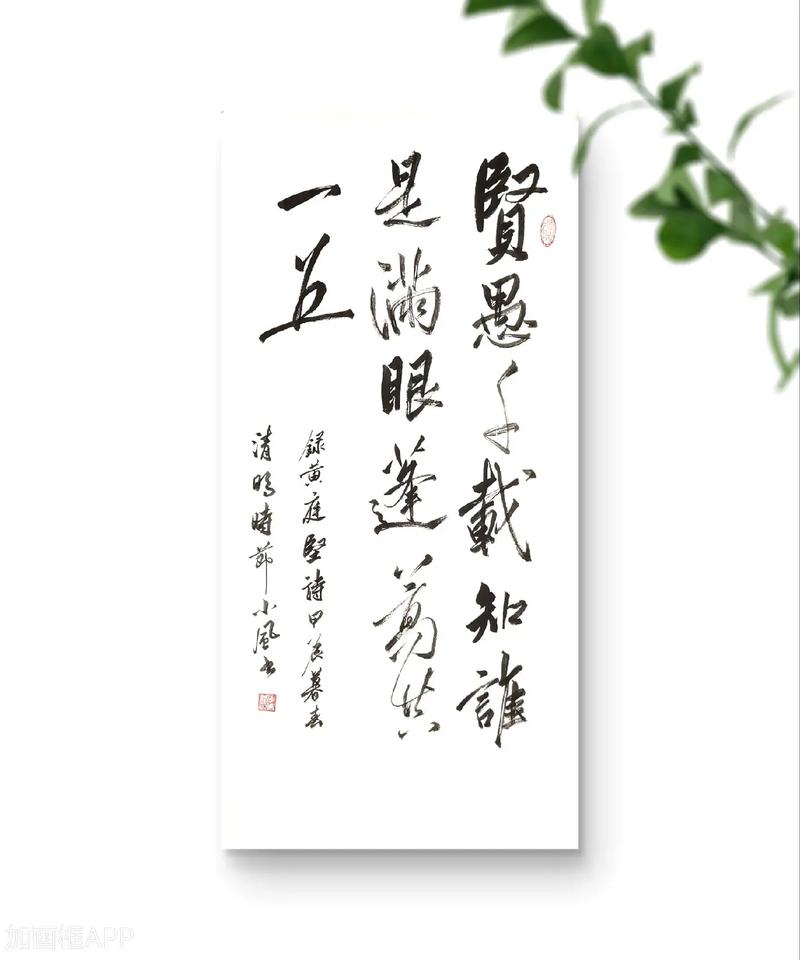 賢愚千載知誰
是滿眼蓬蒿共
一丘
録黄庭堅詩甲辰暮春
清明時節小風书
加画框APP